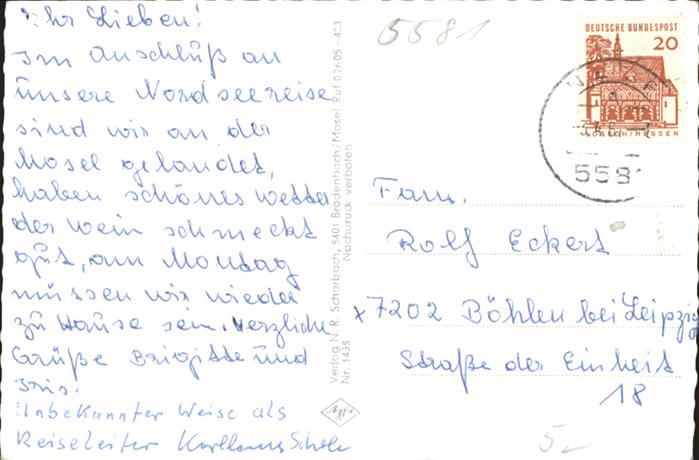 Ihr Lieben!
Im Anschluß an
unsere Nordseereise
sind wir an der
Mosel gelandet,
haben schönes Wetter
der Wein schmeckt
gut, am Montag
müssen wir wieder
zu Hause sein. Herzliche
Grüße Brigitte und
Iris.
Unbekannter Weise als
Reiseleiter Karlheinz
Verlag N. R. Scharbach, 5401 Brodenbach/Mosel, Ruf 02605-423
Nachdruck verboten
Nr. 1435
5581
DEUTSCHE BUNDESPOST
20
LORSCH/HESSEN
5581
Fam.
Rolf Eckert
x 7202 Böhlen bei Leipzig
Straße der Einheit
18
5,-